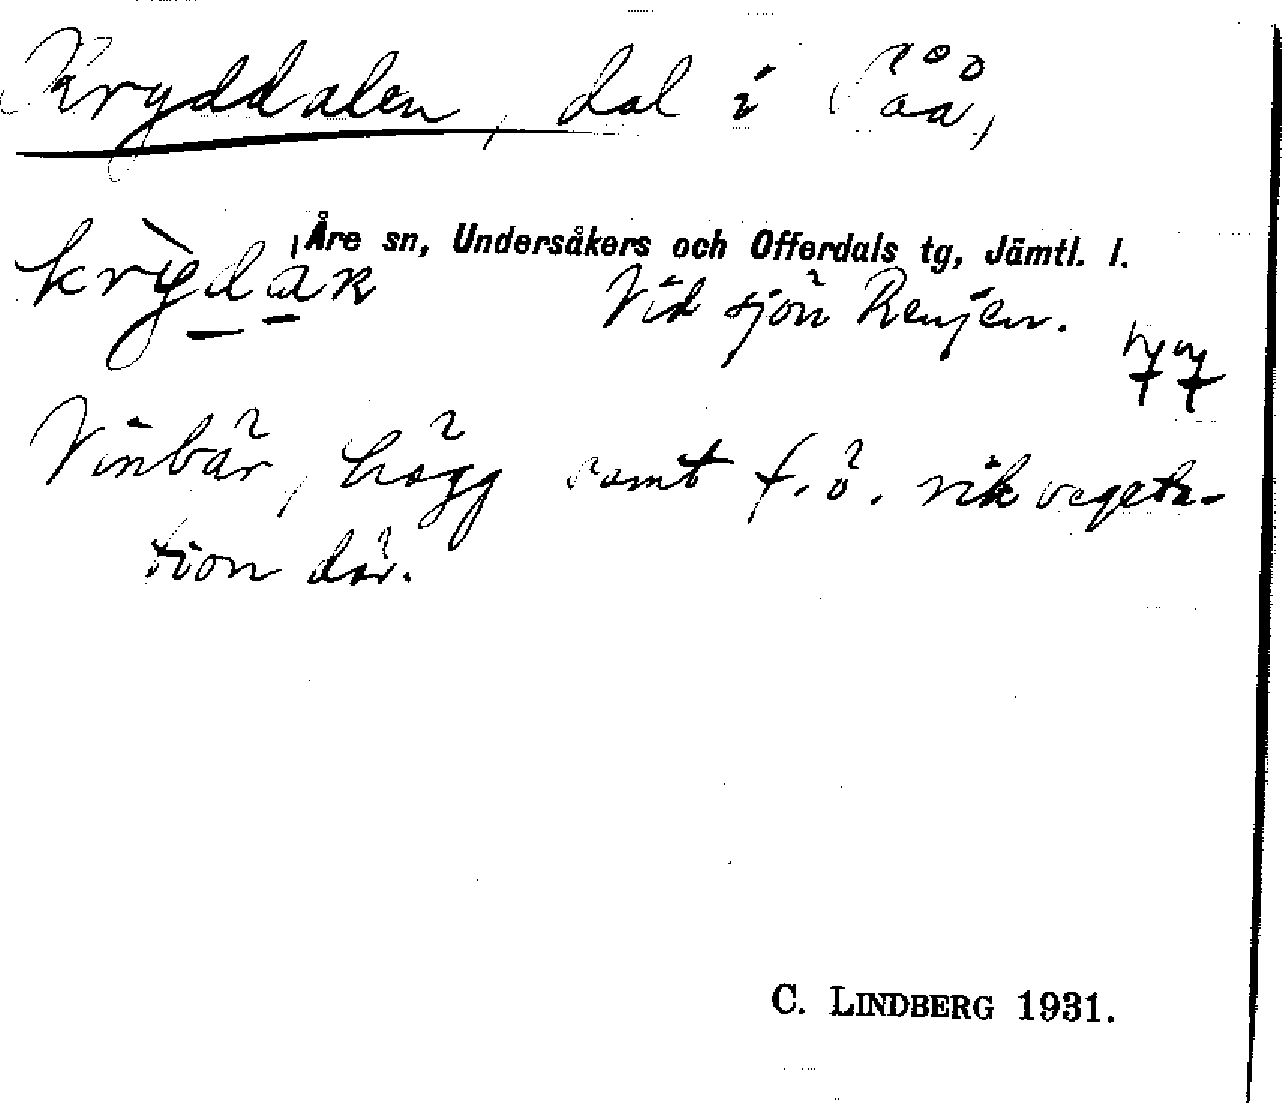 Kryddalen, dal i
Åre sn, Undersåkers och Offerdals tg, Jämtl. l.
Vid sjön Renjen.
77
Vinbär, hägg samt f. ö. rik vegeta-
tion där.
C. LINDBERG 1931.